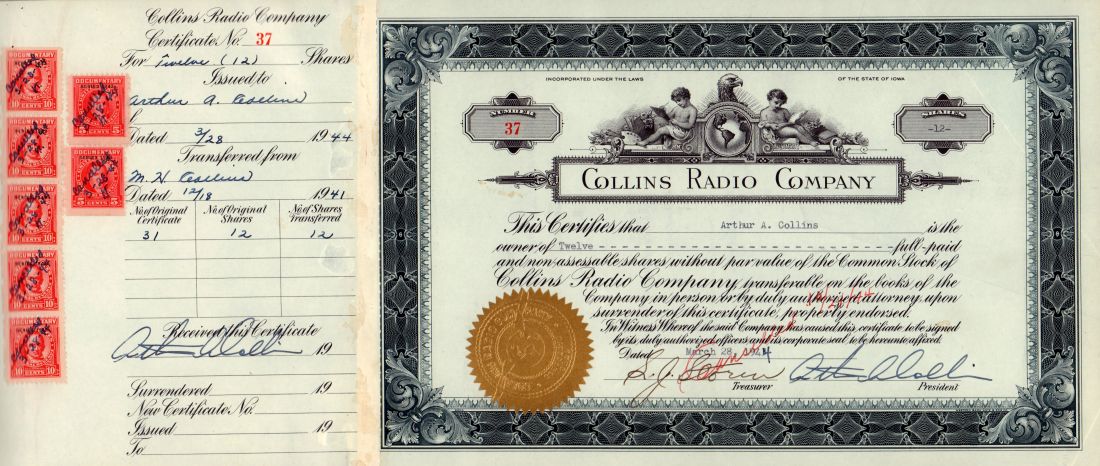 Collins Radio Company
Certificate No. 37
For Twelve (12) Shares
Issued to
Arthur A. Collins
Dated 3/28 1944
Transferred from
M. H. Collins
Dated 12/18 1941
No. of Original Certificate
No. of Original Shares
No. of Shares Transferred
31 12 12
Received this Certificate
Arthur A Collins 19
Surrendered 19
New Certificate No.
Issued 19
To
DOCUMENTARY
10 CENTS 10
DOCUMENTARY
5 CENTS 5
10 CENTS 10
5 CENTS 5
10 CENTS 10
10 CENTS 10
10 CENTS 10
INCORPORATED UNDER THE LAWS OF THE STATE OF IOWA
NUMBER
37
SHARES
-12-
COLLINS RADIO COMPANY
This Certifies that Arthur A. Collins is the
owner of Twelve - - - - - - - - - - - - - - - - - - - - - - full-paid
and non-assessable shares without par value of the Common Stock of
Collins Radio Company transferable on the books of the
Company in person or by duly authorized Attorney upon
surrender of this certificate, properly endorsed.
In Witness Whereof the said Company has caused this certificate to be signed
by its duly authorized officers and its corporate seal to be hereunto affixed.
Dated March 28, 1944
Arthur A Collins
Treasurer President